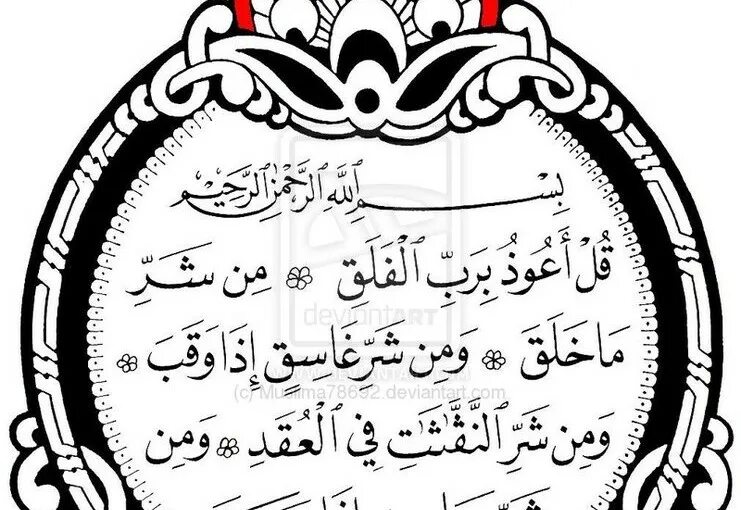 بِسْمِ ٱللَّهِ ٱلرَّحْمَٰنِ ٱلرَّحِيمِ
قُلْ أَعُوذُ بِرَبِّ ٱلْفَلَقِ مِن شَرِّ
مَا خَلَقَ وَمِن شَرِّ غَاسِقٍ إِذَا وَقَبَ
وَمِن شَرِّ ٱلنَّفَّٰثَٰتِ فِي ٱلْعُقَدِ وَمِن
deviantART
(c) Muslima78692.deviantart.com